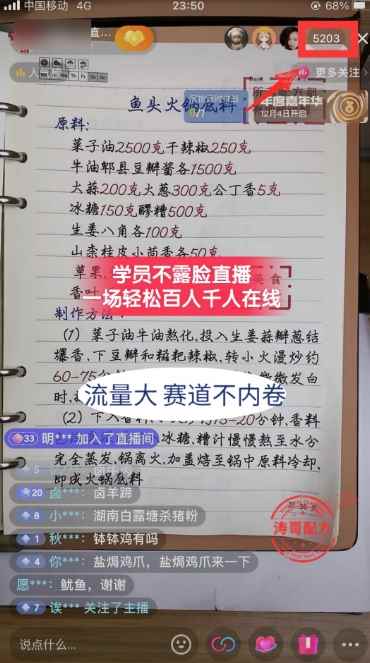 中国移动 4G
23:50
68%
直...
5203
人气房
更多关注
年度嘉年华
12月4日开启
鱼头火锅底料
原料:
菜子油2500克干辣椒250克
牛油郫县豆瓣酱各1500克
大蒜200克大葱300克公丁香5克
冰糖150克醪糟500克
生姜八角各100克
山柰桂皮小茴香各50克
草果、
美食
香叶
学员不露脸直播
一场轻松百人千人在线
制作方法:
(1) 菜子油牛油熬化,投入生姜蒜瓣葱结
爆香,下豆瓣和糍粑辣椒,转小火漫炒约
60-75分
微微发白
时,
流量大 赛道不内卷
(2) 下入香料
15-20分钟,香料
33 明*** 加入了直播间
冰糖、糟汁慢慢熬至水分
5
完全蒸发,锅离火,加盖焙至锅中原料冷却,
即成火锅底料
20 卤***: 卤羊蹄
8 小***: 湖南白露塘杀猪粉
1 秋***: 钵钵鸡有吗
4 你***: 盐焗鸡爪,盐焗鸡爪来一下
愿***: 鱿鱼,谢谢
7 诶*** 关注了主播
涛哥配方
说点什么...